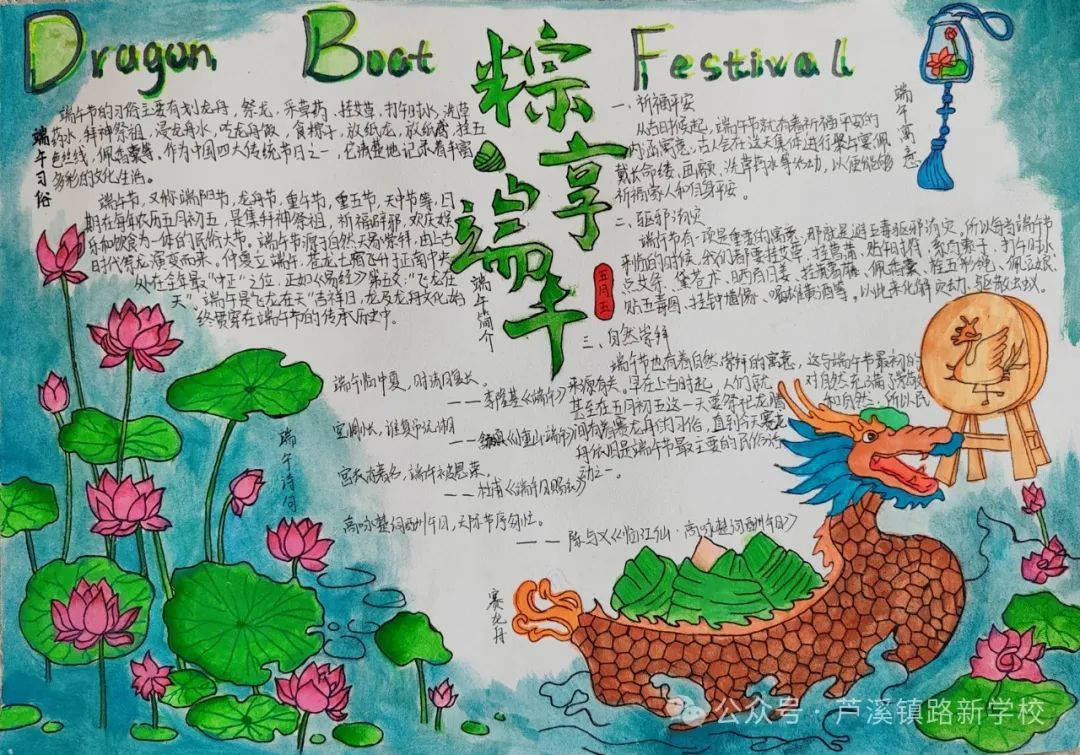 Dragon Boat Festival
粽享
端午
五月五
端午习俗
端午节的习俗主要有划龙舟，祭龙，采草药，挂艾草，打午时水，洗草
药水，拜神祭祖，浸龙舟水，吃龙舟饭，食粽子，放纸龙，放纸鸢，拴五
色丝线，佩香囊等。作为中国四大传统节日之一，它清楚地记录着丰富
多彩的文化生活。
端午节，又称端阳节，龙舟节，重午节，重五节，天中节等，日
期在每年农历五月初五，是集拜神祭祖，祈福辟邪，欢庆娱
乐和饮食为一体的民俗大节。端午节源于自然天象崇拜，由上古
时代祭龙演变而来。仲夏立端午，苍龙七宿飞升于正南中央
处在全年最“中正”之位，正如《易经》第五爻：“飞龙在
天”。端午是“飞龙在天”吉祥日，龙及龙舟文化始
终贯穿在端午节的传承历史中。
端午简介
端午寓意
一、祈福平安
从古时候起，端午节就有着祈福平安的
内涵寓意，古人会在这天集体进行
戴长命缕，画额，洗草药水等活动，以便能够
祈福家人和自身平安。
二、驱邪消灾
端午节有一项是重要的寓意，那就是避五毒驱邪消灾。所以每当端午节
来临的时候，我们都要挂艾草，挂菖蒲，贴午时符，
点艾条，
贴五毒图，挂钟馗像，喝雄黄酒等。以此来化解
三、自然崇拜
端午节也有着自然崇拜的寓意，这与端午节最初的
来源有关。早在上古时起，人们就
甚至在五月初五这一天要祭祀龙
间有着赛龙舟的习俗，直到今天赛龙
舟依旧是端午节最主要的民俗活
动之一。
端午诗句
端午临中夏，时清日复长。
——李隆基《端午》
——《小重山·端午》
宫衣亦有名，端午被恩荣。
——杜甫《端午日赐衣》
高咏楚词酬午日，天涯节序匆忙。
——陈与义《临江仙·高咏楚词酬午日》
赛龙舟
公众号·芦溪镇路新学校